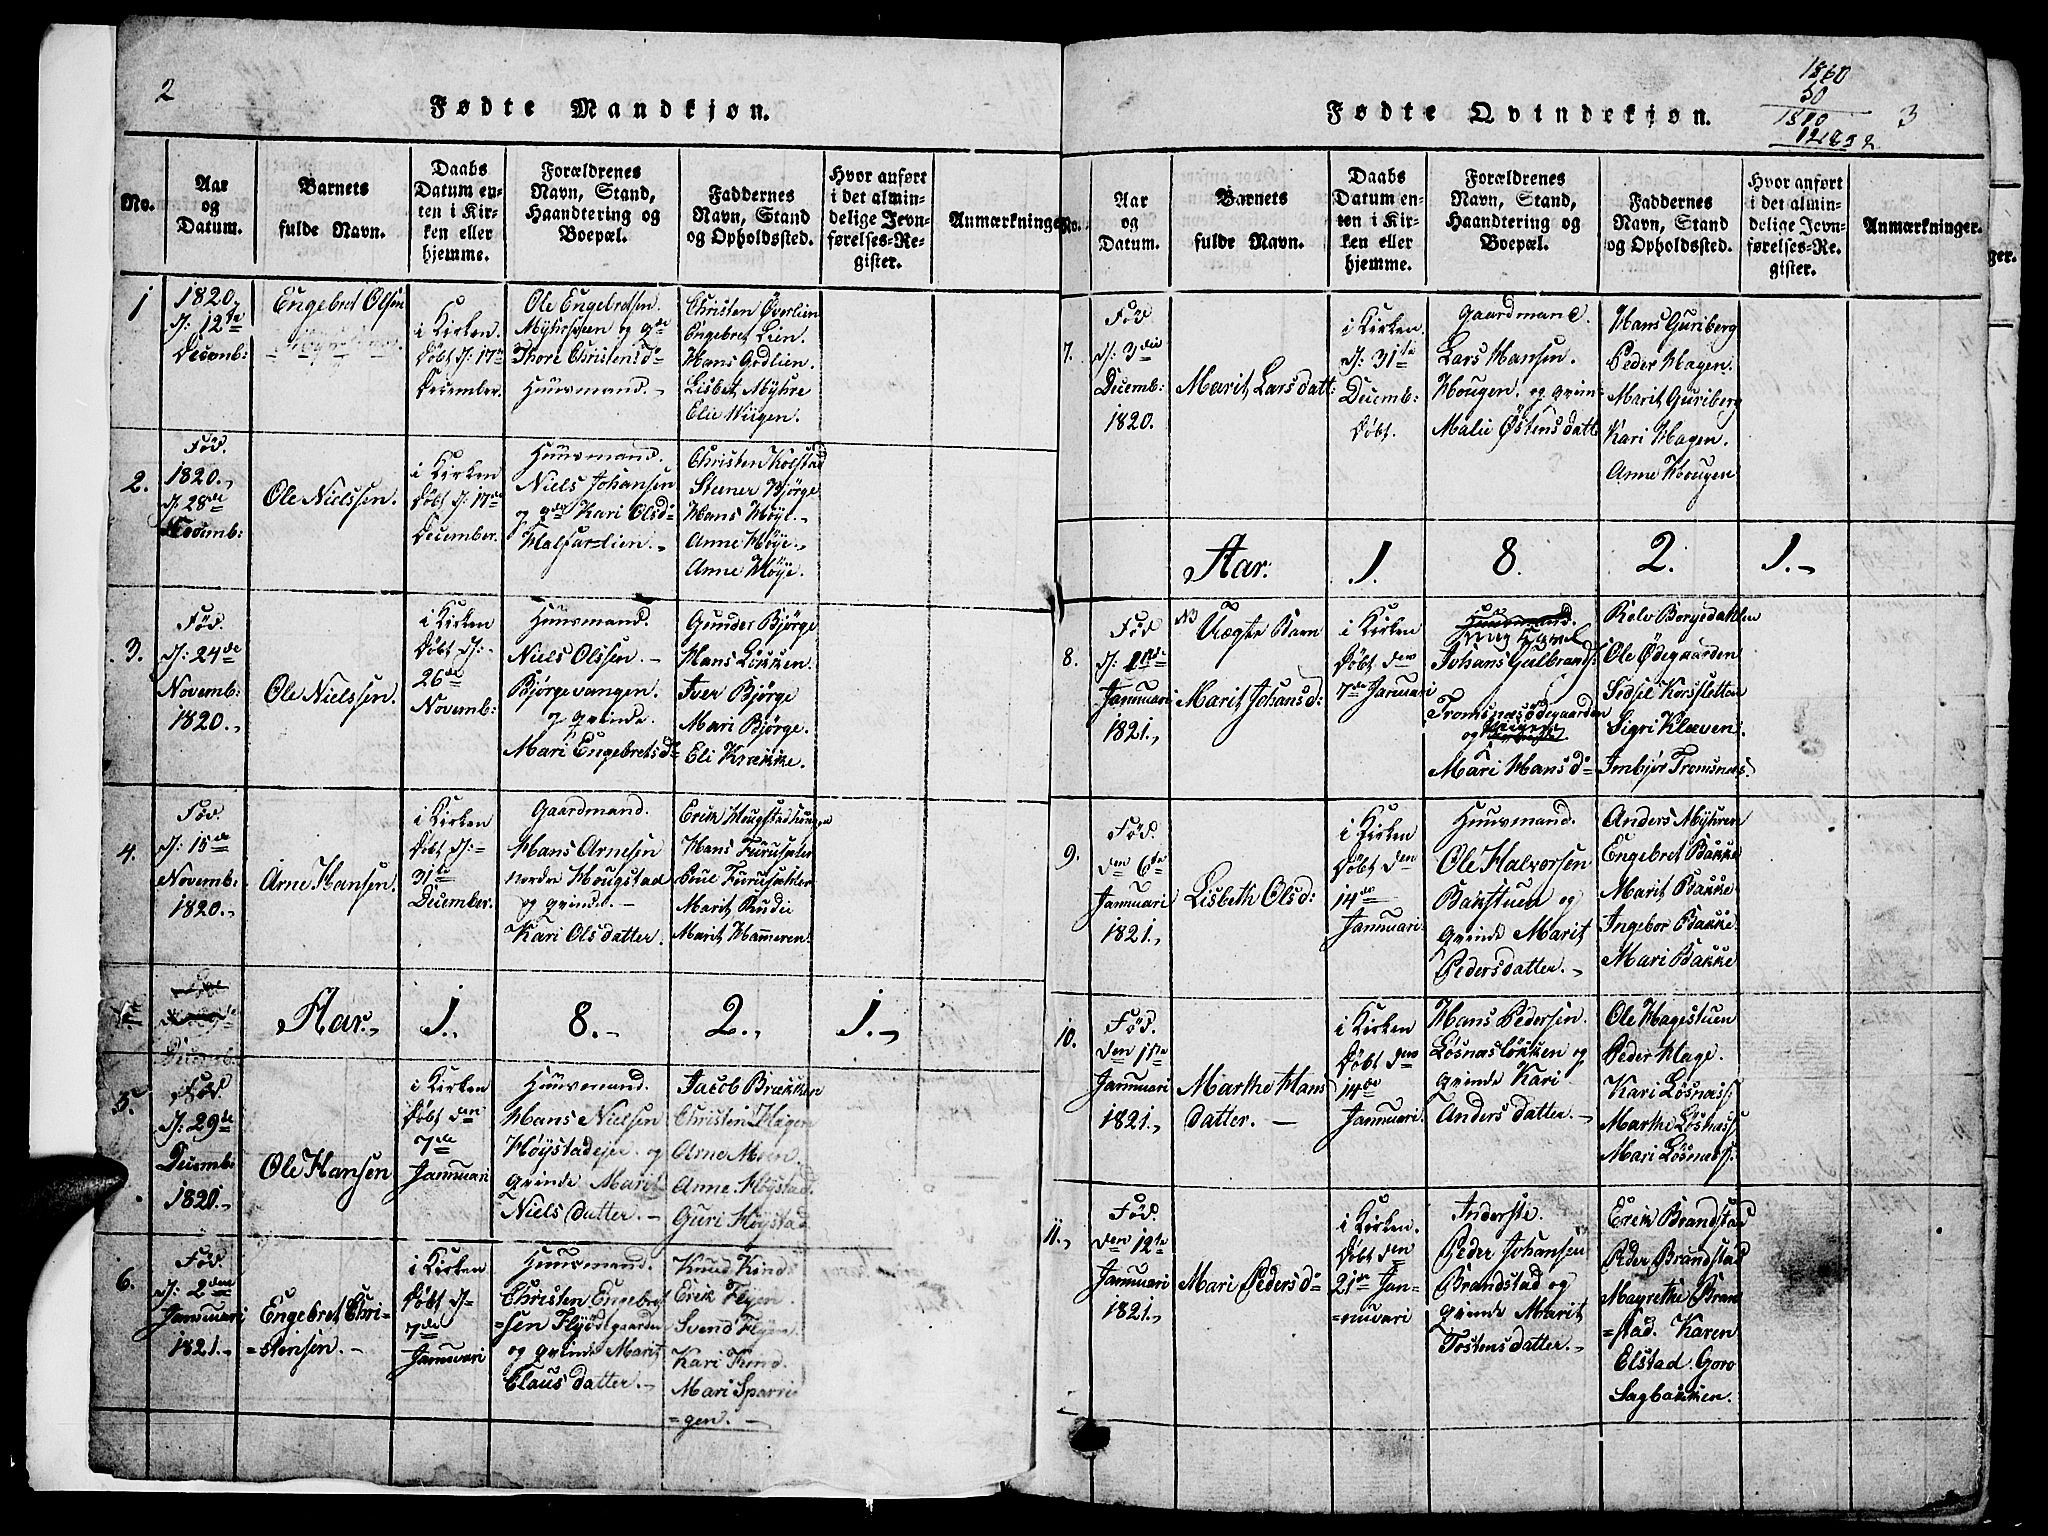 2
Fødte Mandkjøn.
No.
Aar
og
Datum.
Barnets
fulde Navn.
Daabs
Datum en-
ten i Kir-
ken eller
hjemme.
Forældrenes
Navn, Stand,
Haandtering og
Boepæl.
Faddernes
Navn, Stand
og Opholdssted.
Hvor anført
i det almin-
delige Jevn-
førelses-Re-
gister.
Anmærkninger
1
1820.
d: 12te
Decemb:
Engebret Olsen
i Kirken.
døbt d: 17de
December.
Ole Engebretsen.
Myhrsveen og qde
Thore Christensd:
Huusmand. -
Christen Øverlien
Engebret Lien.
Hans Godlien.
Lisbet Myhre
Elie Wiigen.
2.
Fød.
1820.,
d: 28de
Novemb:
Ole Nielssen.
i Kirken
døbt d: 17de
December.
Huusmand.
Niels Johansen
og qde Kari Olsd:
Kalfarlien. -
Christen Kolstad
Stener Bjørge
Hans Høye.
Anne Høye.
Anne Høye.
3.
Fød.
d: 24de
Novemb:
1820.,
Ole Nielssen.
i Kirken
døbt d:
26de
Novemb:
Huusmand.
Niels Olssen. -
Bjørgevangen.
og qvinde.
Mari Engebretsd:
Gunder Bjørge
Hans Løkken.
Iver Bjørge
Mari Bjørge.
Eli Krække.
4.
Fød.
d: 15de
Novemb:
1820.,
Arne Hansen.
i Kirken
døbt d:
31te
December.
Gaardmand.
Hans Arnesen
nordre Hougstad
og qvinde. -
Kari Olsdatter.
Erik Hougstadhaugen
Hans Furusæter
Poul Furusæter
Marit Rudii
Marit Hammeren.
Aar., 1. 8. - 2., 1. -
5.
Fød
d: 29de
Decemb:
1820.,
Ole Hansen
i Kirken
døbt den
7de
Januari
Huusmand.
Hans Nielsen
Høystadeje. og
qvinde Marit
Nielsdatter. -
Jacob Brækken
Christen Hagen
Arne Moen.
Anne Høystad.
Guri Høystad.
6.
Fød.
d: 2den
Januari
1821.,
Engebret Chri-
=stensen. -
i Kirken
døbt d:
7de
Januari
Huusmand.
Christen Engebret
=sen Flyødegaarden
og qvinde Marit
Clausdatter. -
Knud Kind.
Erik Flyen.
Svend Flyen.
Kari Kind.
Mari Sparri
=gen. -
1860
50
1810
3
Fødte Qvindekjøn.
No.
Aar
og
Datum.
Barnets
fulde Navn.
Daabs
Datum en-
ten i Kir-
ken eller
hjemme.
Forældrenes
Navn, Stand,
Haandtering og
Boepæl.
Faddernes
Navn, Stand
og Opholdssted.
Hvor anført
i det almin-
delige Jevn-
førelses-Re-
gister.
Anmærkninger.
ger.
7.
Fød.
d: 3die
Decemb:
1820.
Marit Larsdatt:
i Kirken.
d: 31te
Decemb:
døbt.
Gaardmand.
Lars Hansen.
Hougen. og qvin-
Malie Østensdatt:
Hans Guriberg
Peder Hagen.
Marit Guriberg
Kari Hagen.
Anne Hougen
Aar. 1. 8. 2. 1. -
8.
Fød
Januari
1821.,
NB Uægte Barn
Marit Johansd:
i Kirken
døbt den
7de Januari
Huusmand.
Johans Gulbrands:
Tromsnæsødegaarden
og
Mari Hansd:
Rolv Borgedahlen
Ole Ødegaarden
Sedsel Korsletten
Sigri Klæven.
Imbjør Tromsnæs
9.
Fød.
den 6te
Januari
1821.,
Lisbeth Olsd:
i Kirken
døbt den
14de
Januari.
Huusmand.
Ole Halvorsen
Bakstuen og
qvinde Marit
Pedersdatter. -
Anders Myhren
Engebret Bakke
Marit Bakke
Ingebor Bakke.
Mari Bakke
10.
Fød.
den 11te
Januari
1821.,
Marthe Hans
datter. -
i Kirken
døbt den
14de
Januari.
Hans Pedersen.
Løsnæsløkken og
qvinde Kari
Andersdatter. -
Ole Hagestuen
Peder Hage.
Kari Løsnæss:
Marthe Løsnæss:
Mari Løsnæss:
11.,
Fød.
den 12te
Januari
1821.,
Mari Pedersd:
i Kirken.
døbt den
21de Jan-
=nuari
Inderste.
Peder Johansen
Brandstad og
qvinde Marit
Tostensdatter. -
Erik Brandstad
Peder Brandstad
Magrethe Brand
=stad. Karen
Elstad. Goro
Sagbakken.